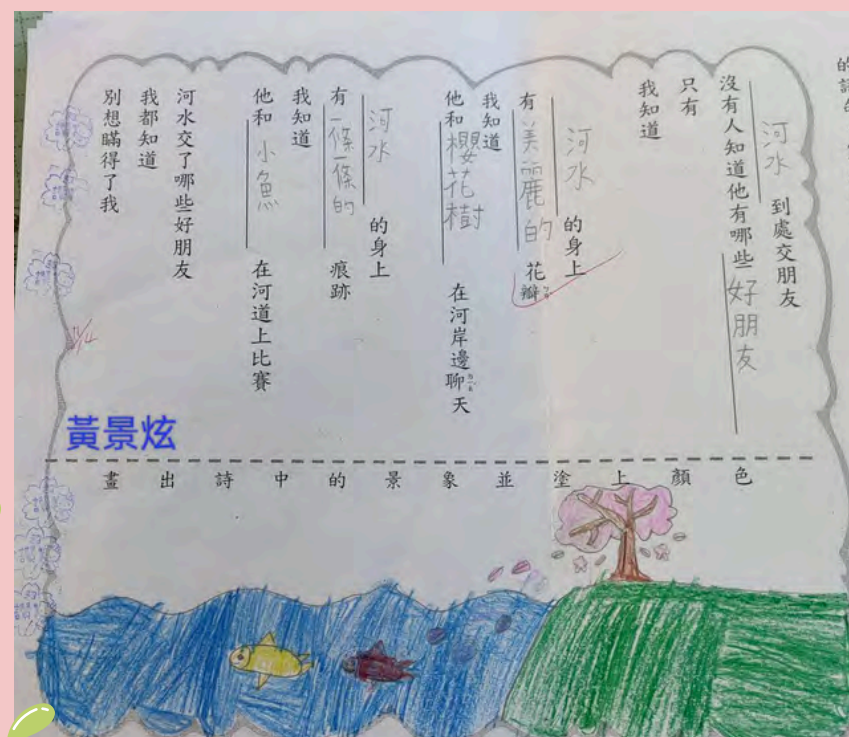 河水到處交朋友
沒有人知道他有哪些好朋友
只有
我知道
河水的身上
有美麗的花瓣
我知道
他和櫻花樹在河岸邊聊天
河水的身上
有一條一條的痕跡
我知道
他和小魚在河道上比賽
河水交了哪些好朋友
我都知道
別想瞞得了我
黃景炫
畫出詩中的景象並塗上顏色